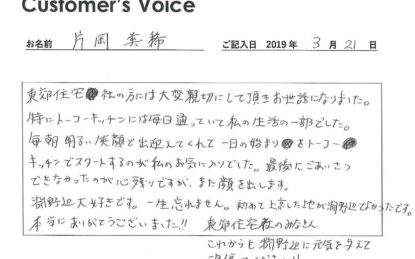 Customer's Voice
お名前 片岡 真稀 ご記入日 2019年 3月 21日
東郊住宅社の方には大変親切にして頂きお世話になりました。
特にトーコーキッチンには毎日通っていて私の生活の一部でした。
毎朝明るい笑顔で出迎えてくれて一日の始まりをトーコー
キッチンでスタートするのが私のお気に入りでした。最後にごあいさつ
できなかったのが心残りですが、また顔を出します。
淵野辺大好きです。一生忘れません。初めて上京した地が淵野辺でよかったです。
本当にありがとうございました!! 東郊住宅社のみなさん
これからも淵野辺に元気を与えて